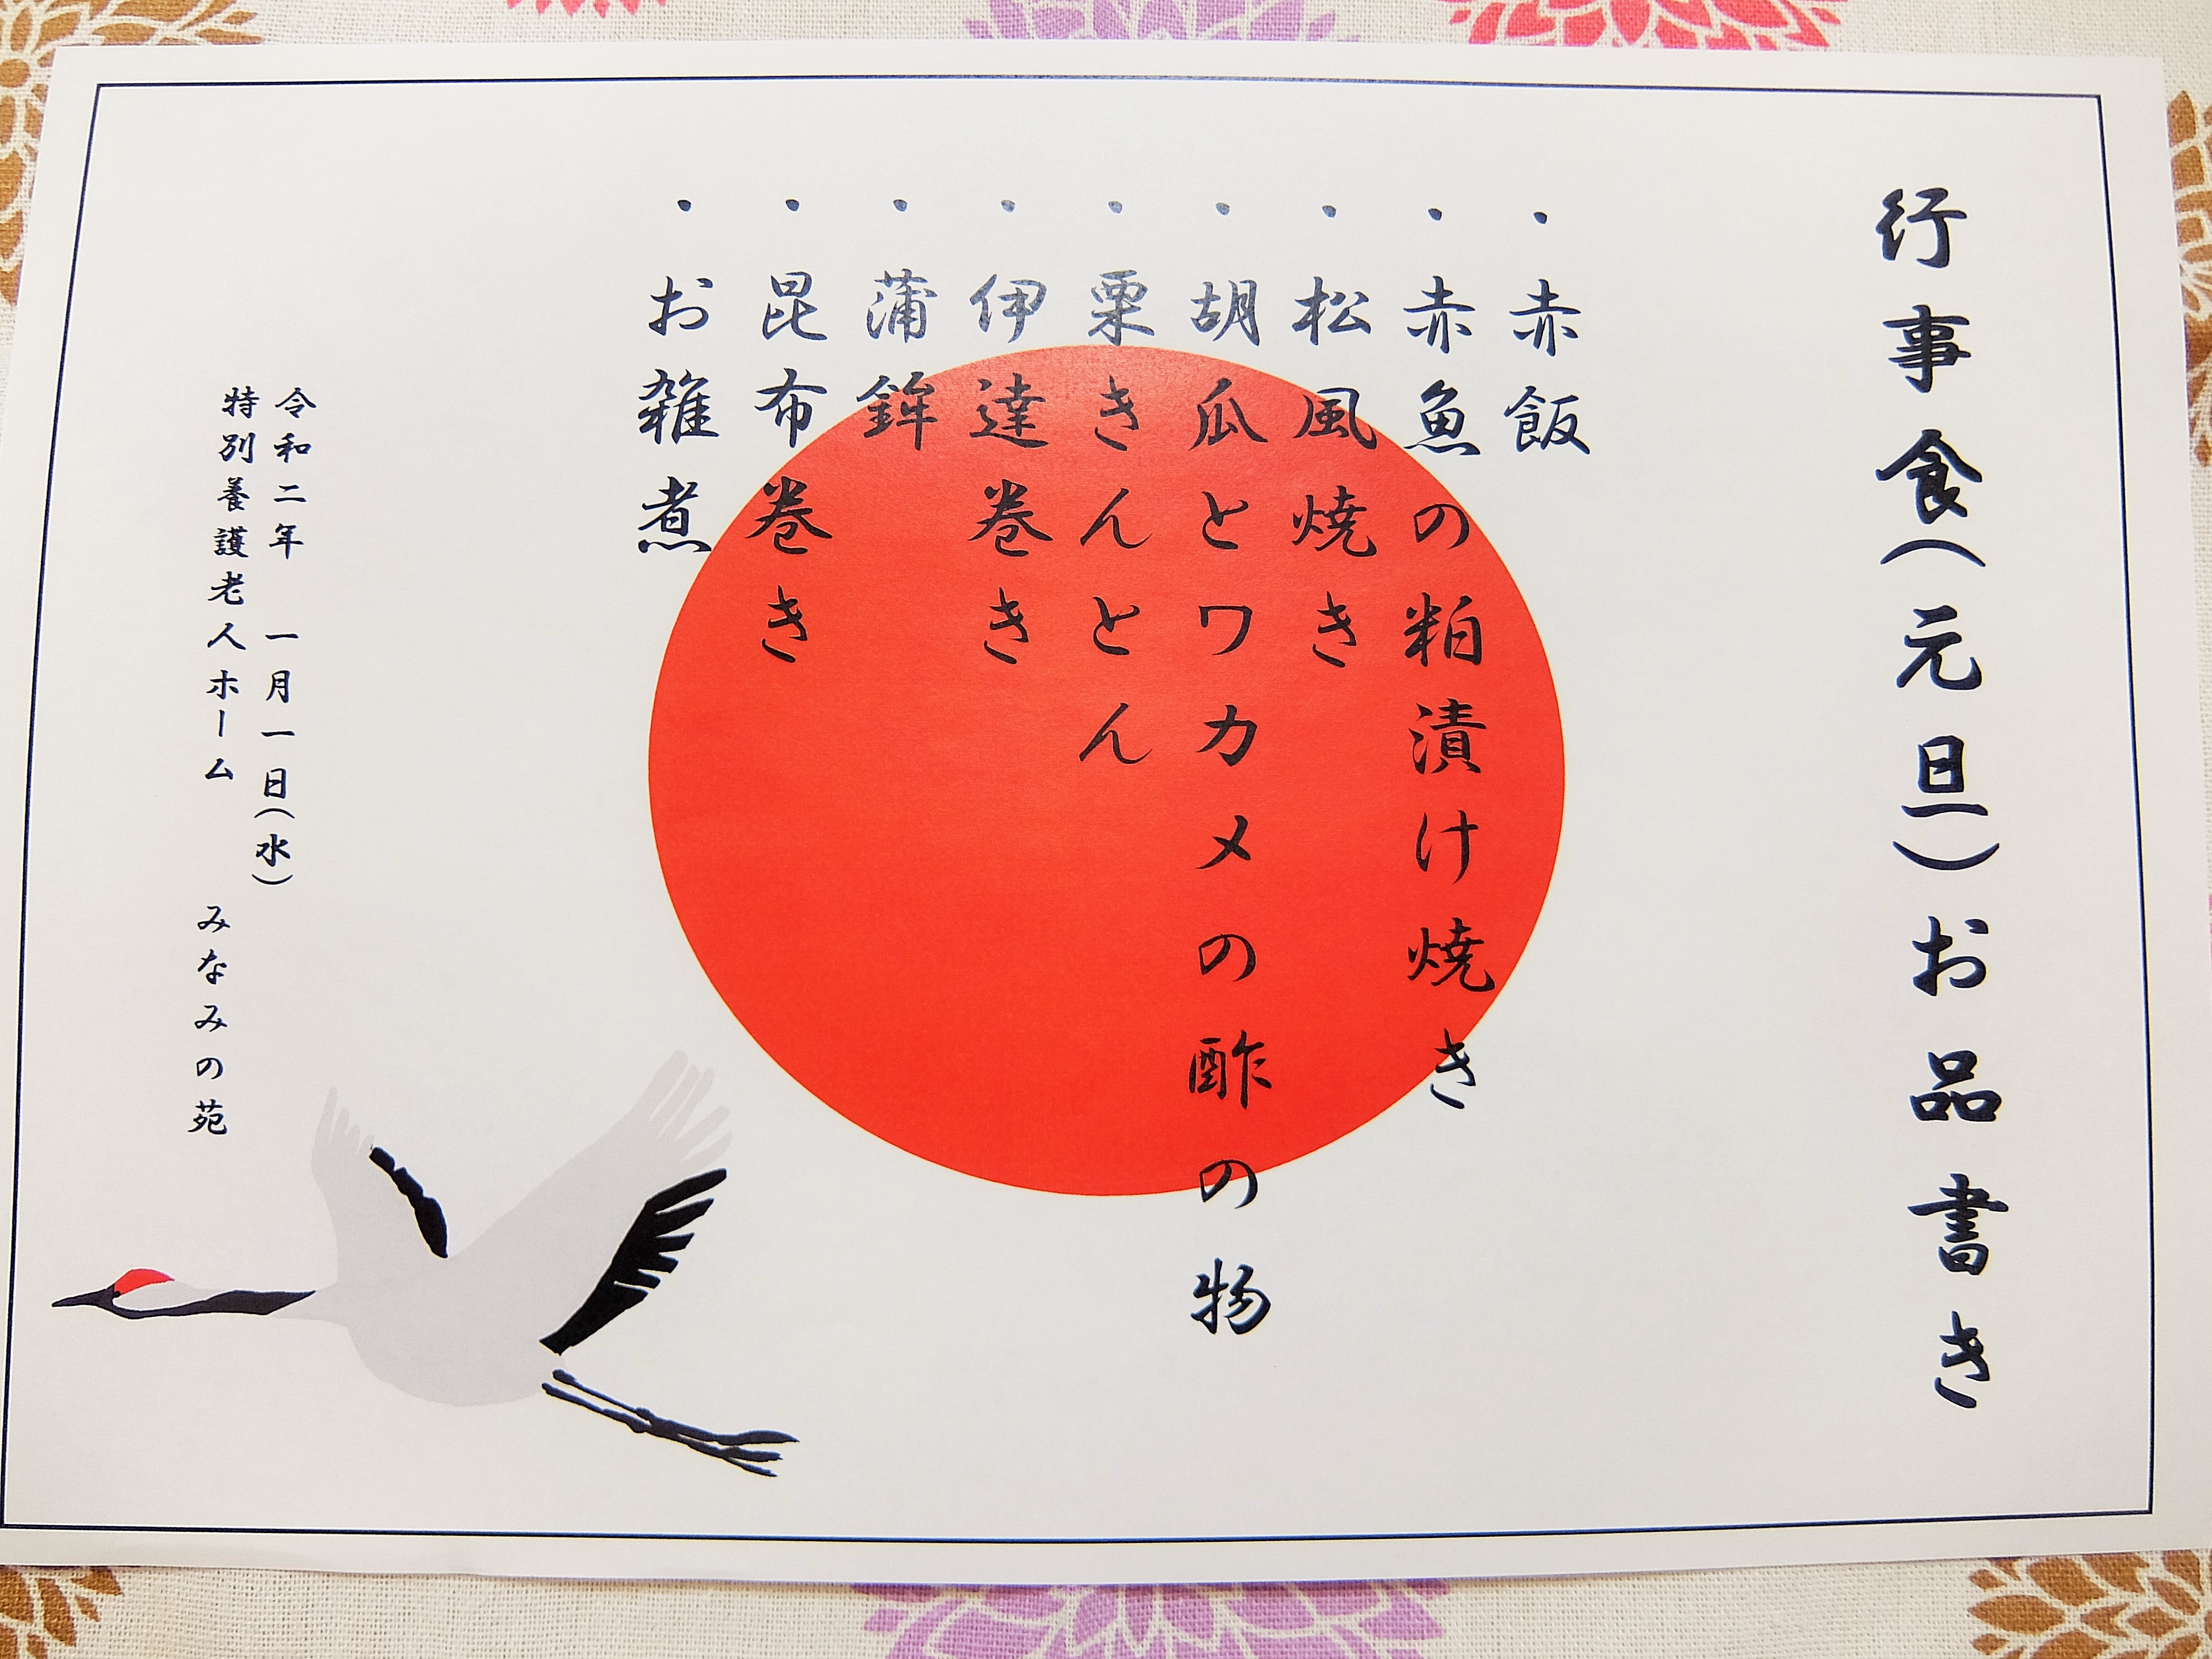 行事食(元旦)お品書き
・赤飯
・赤魚の粕漬け焼き
・松風焼き
・胡瓜とワカメの酢の物
・栗きんとん
・伊達巻き
・蒲鉾
・昆布巻き
・お雑煮
令和二年 一月一日(水)
特別養護老人ホーム みなみの苑